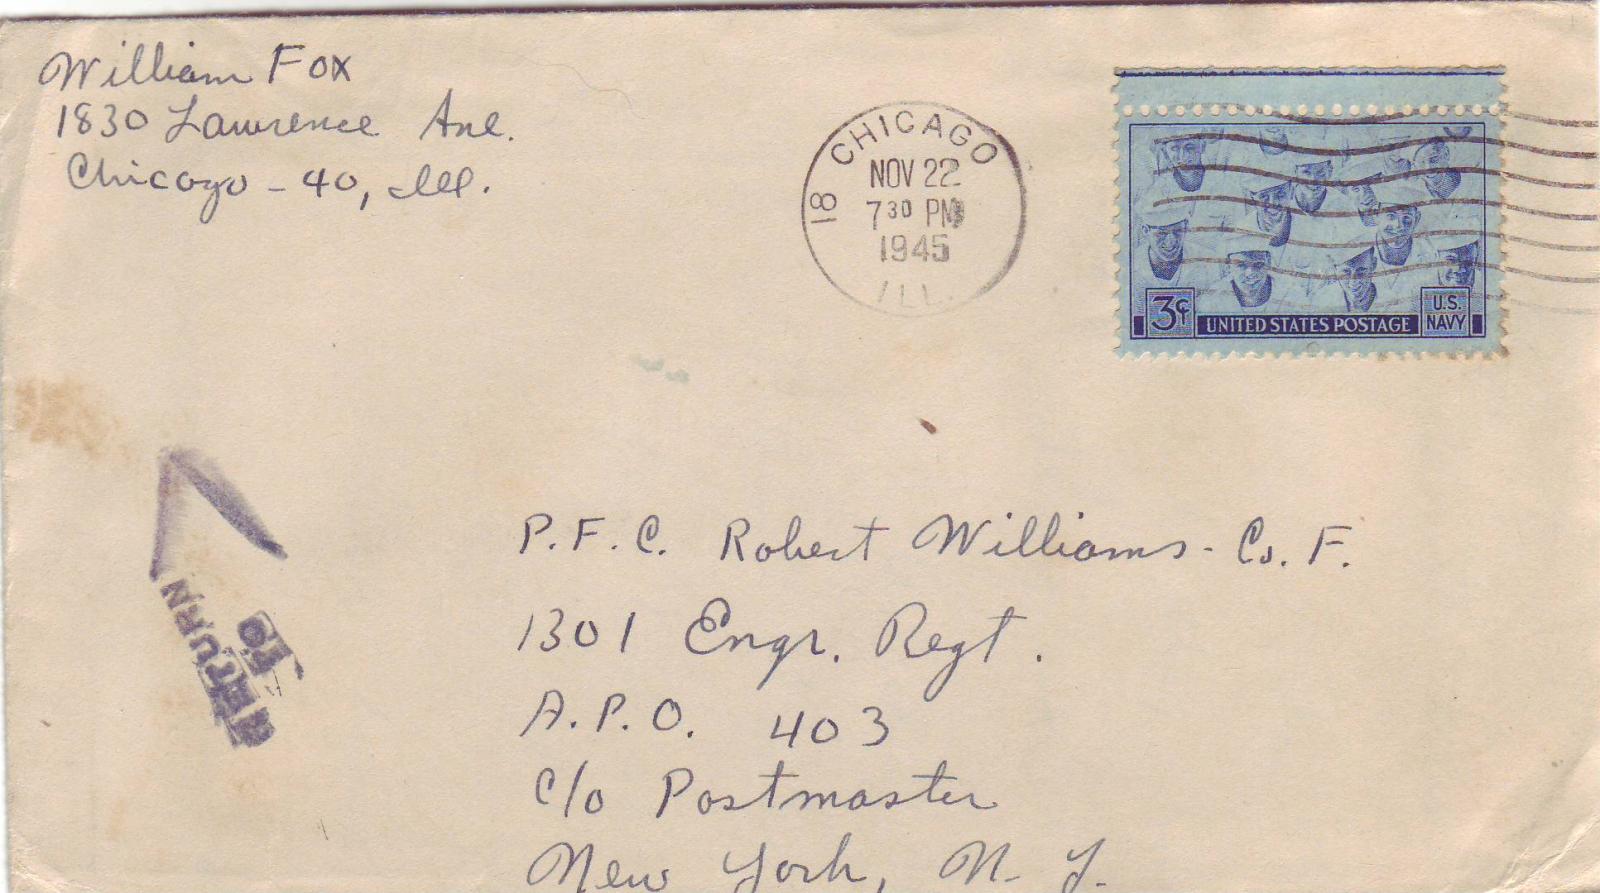 William Fox
1830 Lawrence Ave.
Chicago - 40, Ill.
18 CHICAGO
NOV 22
7 30 PM
1945
ILL.
3¢
UNITED STATES POSTAGE
U.S.
NAVY
RETURN
TO
P.F.C. Robert Williams - Co. F.
1301 Engr. Regt.
A.P.O. 403
c/o Postmaster
New York, N. Y.